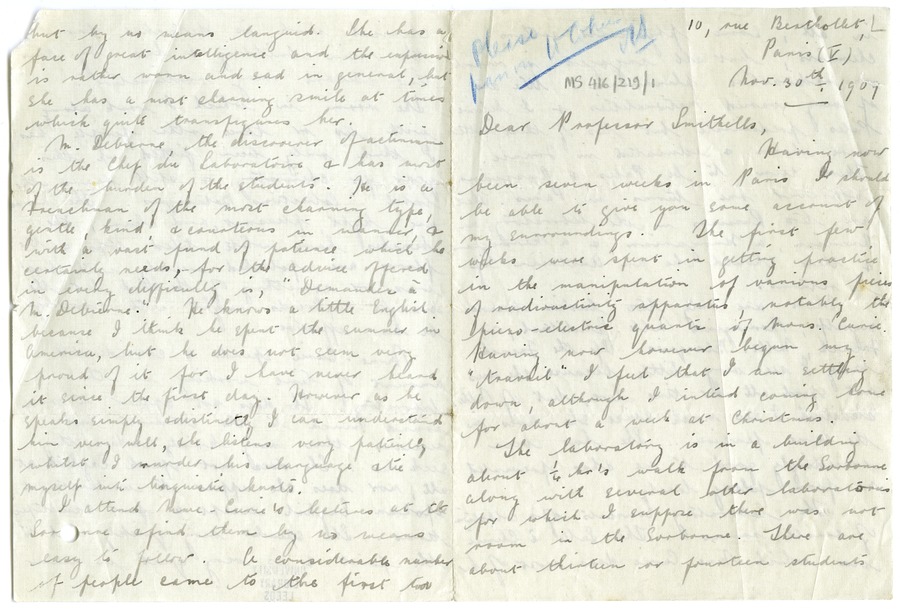 10, rue Berthollet,
Paris (V)
Nov. 30th 1907
Please
MS 416/219/1
Dear Professor Smithells,
Having now
been seven weeks in Paris I should
be able to give you some account of
my surroundings. The first few
weeks were spent in getting practice
in the manipulation of various pieces
of radioactivity apparatus, notably the
piezo-electric quartz of Mons. Curie.
Having now however begun my
"travail" I feel that I am settling
down, although I intend coming home
for about a week at Christmas.
The laboratory is in a building
about ¼ hr's walk from the Sorbonne
along with several other laboratories
for which I suppose there was not
room in the Sorbonne. There are
about thirteen or fourteen students
but by no means languid. She has a
face of great intelligence and the expression
is rather worn and sad in general, but
she has a most charming smile at times
which quite transfigures her.
M. Debierne, the discoverer of actinium
is the Chef du Laboratoire & has most
of the burden of the students. He is a
Frenchman of the most charming type,
gentle, kind, & courteous in manner, &
with a vast fund of patience which he
certainly needs, for the advice offered
in every difficulty is, "Demandez à
M. Debierne." He knows a little English
because I think he spent the summer in
America, but he does not seem very
proud of it for I have never heard
it since the first day. However as he
speaks simply & distinctly I can understand
him very well, & he listens very patiently
whilst I murder his language & tie
myself into linguistic knots.
I attend Mme. Curie's lectures at the
Sorbonne & find them by no means
easy to follow. A considerable number
of people came to the first two